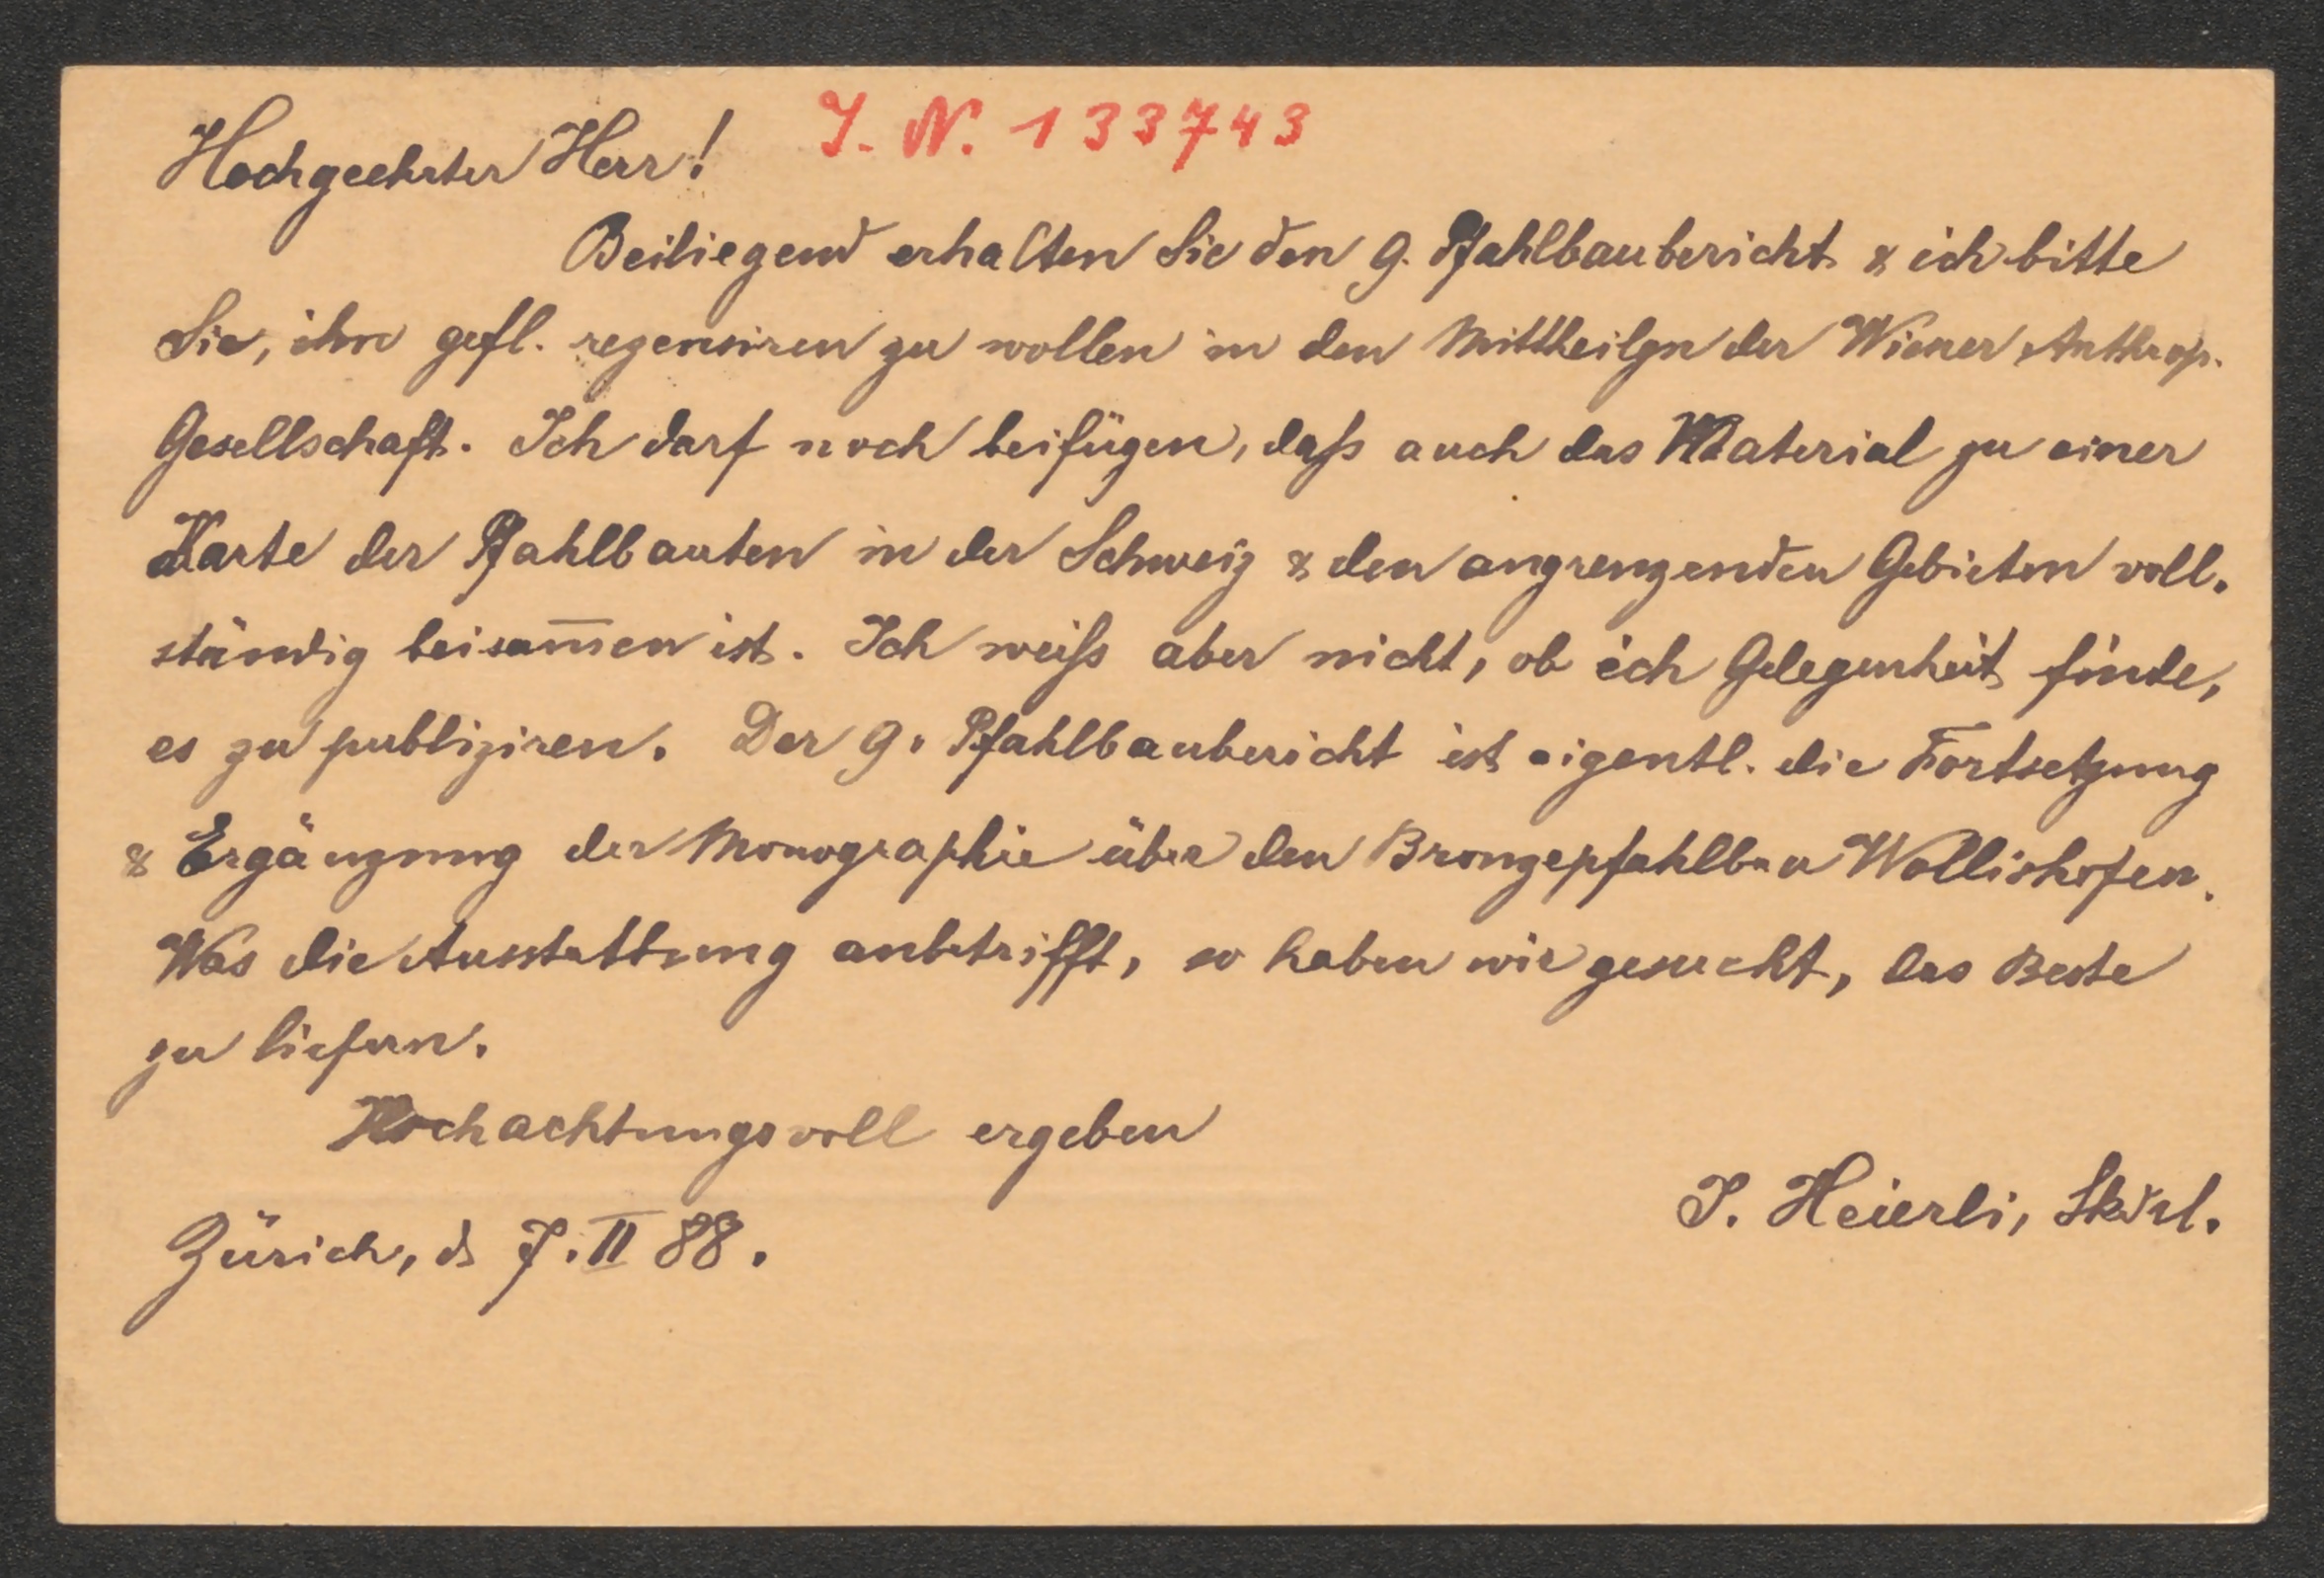 Hochgeehrter Herr! J. N. 133743
Beiliegend erhalten Sie den 9. Pfahlbaubericht & ich bitte
Sie, ihn gefl. rezensiren zu wollen in den Mittheilgn der Wiener Anthrop.
Gesellschaft. Ich darf noch beifügen, daß auch das Material zu einer
Karte der Pfahlbauten in der Schweiz & den angrenzenden Gebieten voll-
ständig beisam̅en ist. Ich weiß aber nicht, ob ich Gelegenheit finde,
es zu publiziren. Der 9. Pfahlbaubericht ist eigentl. die Fortsetzung
& Ergänzung der Monographie über den Bronzepfahlbau Wollishofen.
Was die Ausstattung anbetrifft, so haben wir gesucht, das Beste
zu liefern.
Hochachtungsvoll ergeben
J. Heierli, Skdrl.
Zürich, d. 7. II 88.